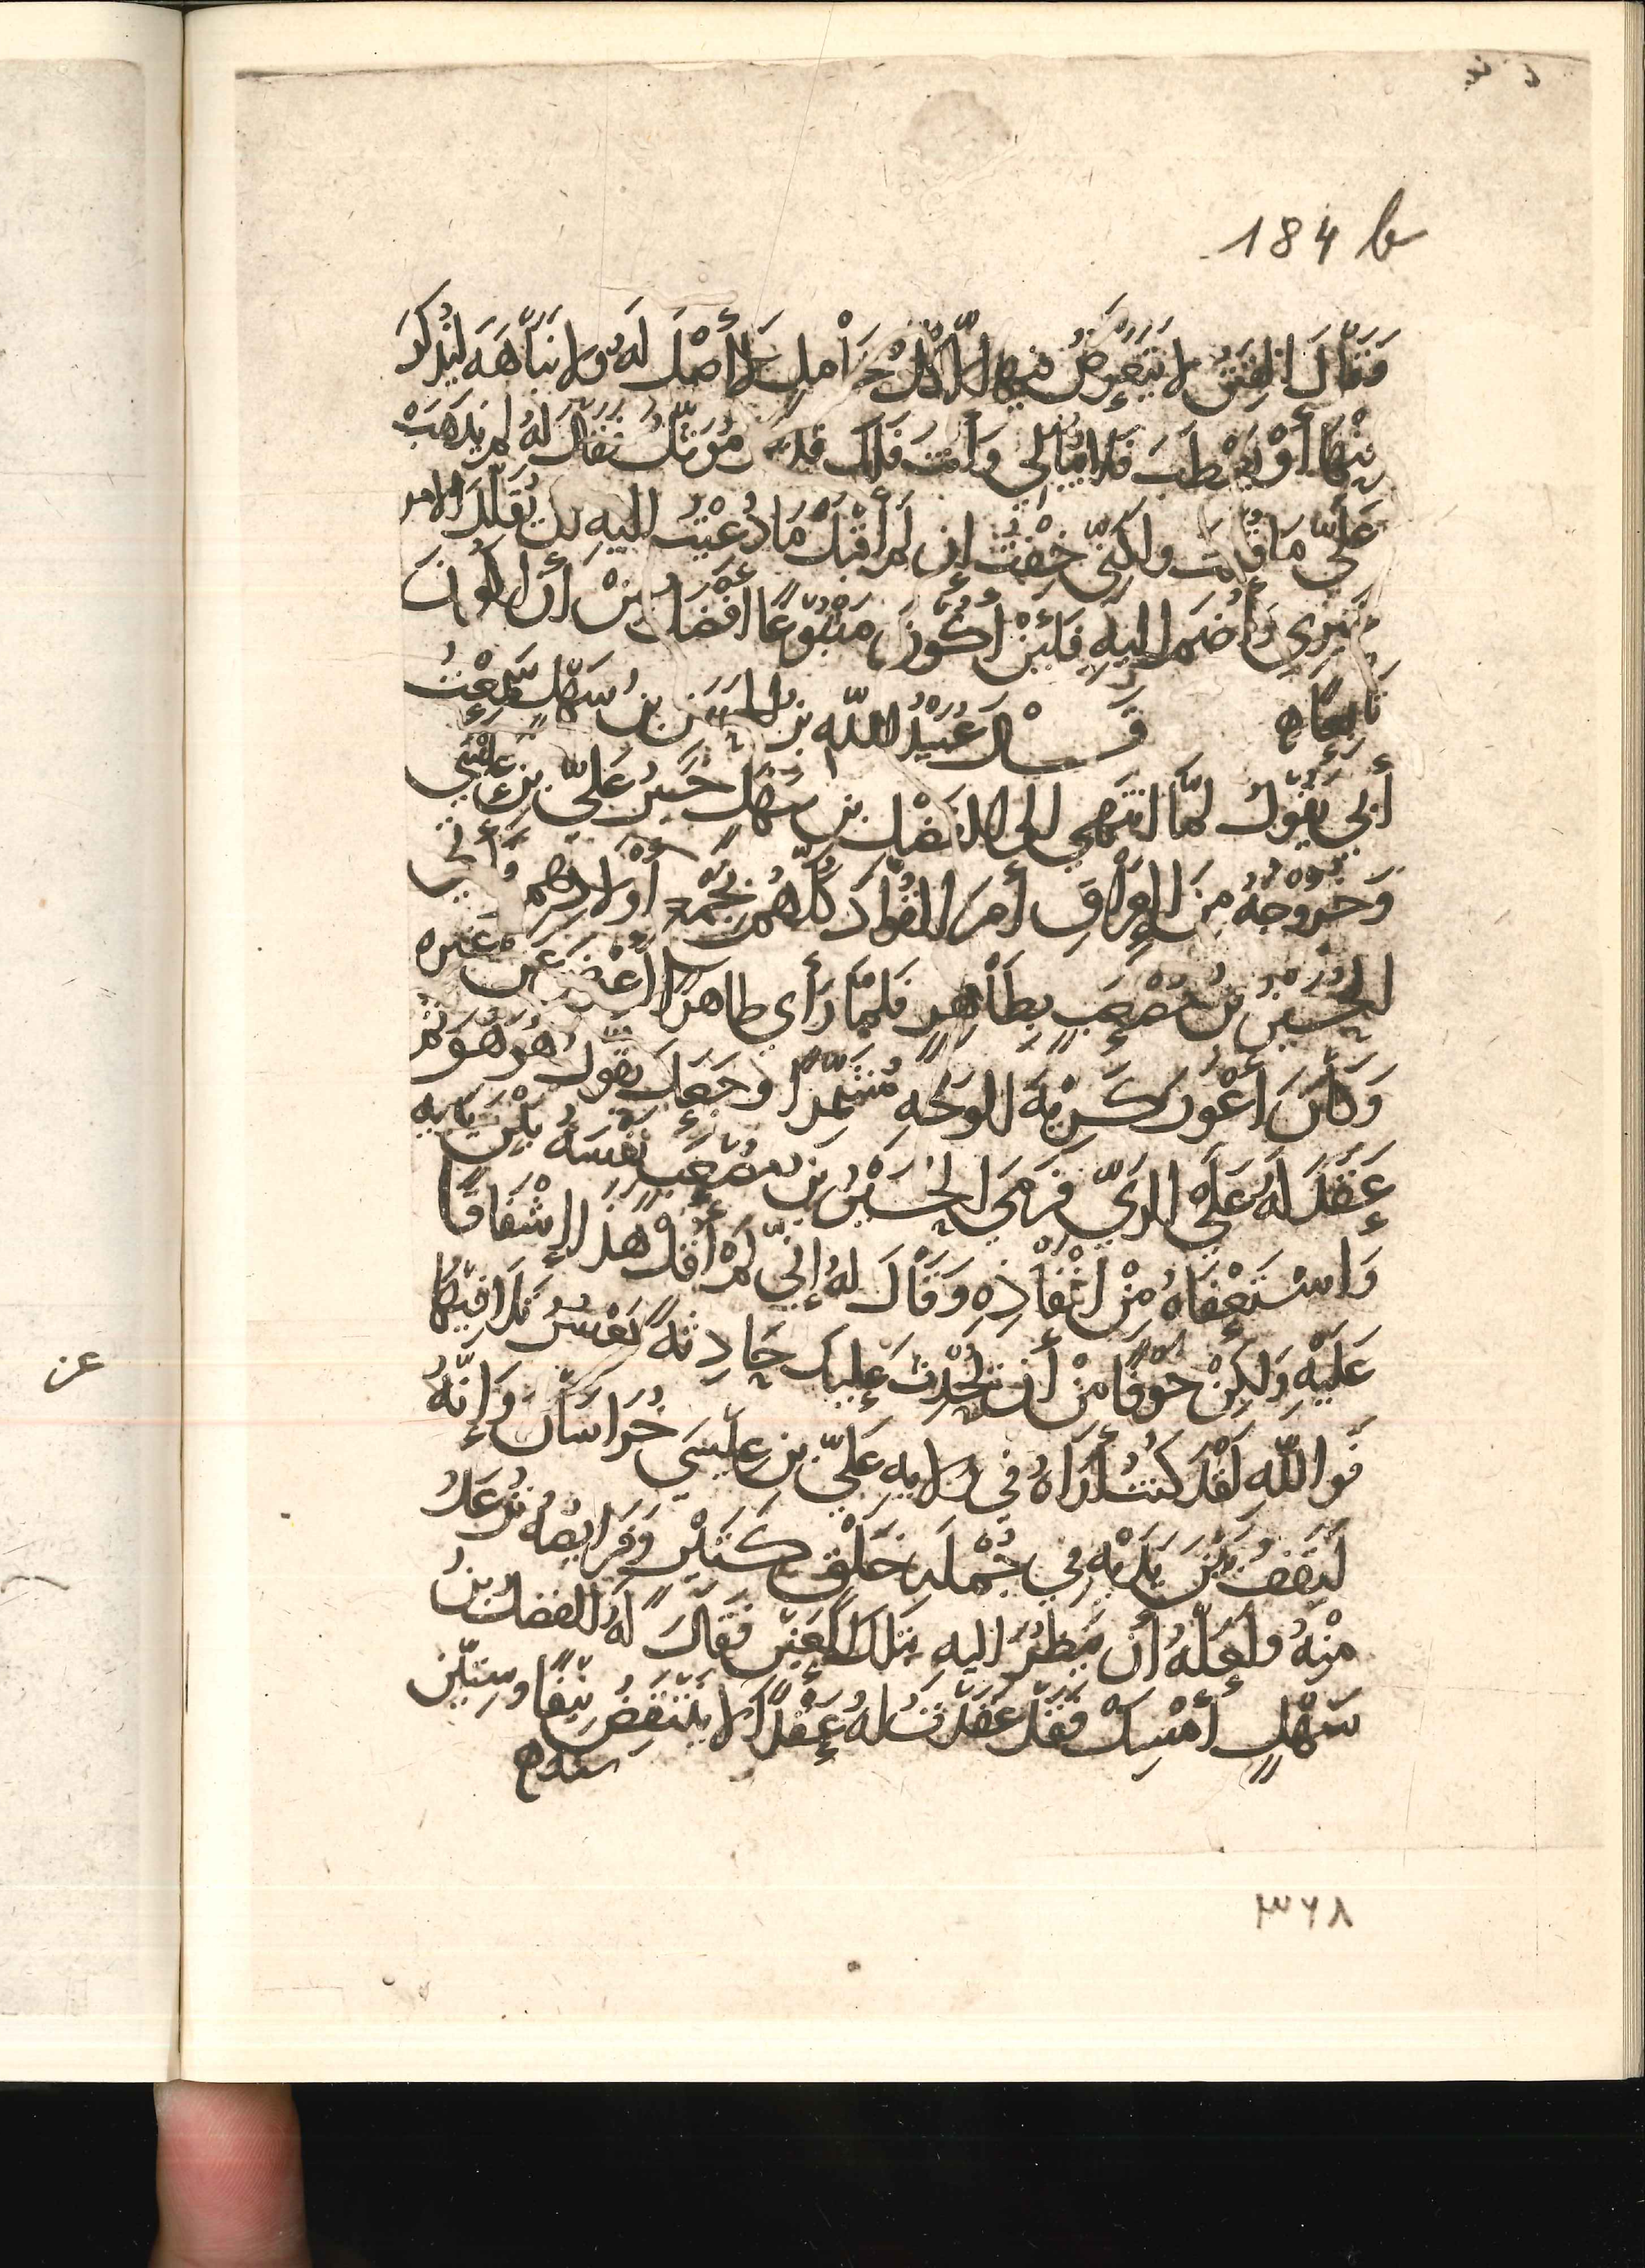 184 b
وَقَالَ الفِتَنُ لا يَتَعَرَّضُ فيها إلّا كُلّ خَامِلٍ لا أَصْلَ لَهُ ولا نَبَاهَةَ لِيُذْكَرَ
بِهَا أَوْ يَعْطَبَ فَلا يُبَالي وَأَنتَ فَلَكَ قَدِيمٌ فَقَالَ لَهُ لم يَذْهَبْ
عَلَيَّ مَا قُلْتَ ولكِنّي خِفْتُ إن لَم أَقْبَلْ مَا دُعِيْتُ اليه أن يُقَلَّدَ الامر
غيري وَأُضَمَ اليهِ فَلَئِنْ أَكُونَ مَتْبُوعًا أَفْضَلُ مِنْ أن أَكُونَ
تَابِعًا ه قَالَ عُبَيْدُ اللّه بن الحُسَين بنُ سَهْل سَمِعْتُ
أَبي يَقُولُ لمَّا انتَهى الى الفَضْل بن سَهْلٍ خَبَرُ عَليّ بنِ عِيْسَى
وَخُرُوجُهُ مِنَ العِرَاقِ أَمَرَ القُوَّادَ كُلّهُمْ بِجَمْعِ أَوْلادِهِم وَأَتى
الحُسَيْنُ بنُ مُصْعَبٍ بِطَاهِرٍ فَلَمَّا رَأى طاهرًا أَعْرَضَ عَن غيره
وَكَانَ أَعْوَر كَرِيْهَ الوَجْهِ مُتَشَمِّرًا وَجَعَلَ يَقُولُ هُوَ هُوَ ثم
عَقَدَ لَهُ عَلَى الريّ فَرَمَى الحُسَيْنُ بنُ مُصْعَبٍ نَفْسَهُ بَيْنَ يَدَيه
وَاسْتَعْفَاهُ مِنْ إنْفَاذِهِ وَقَالَ لهُ إنّي لَمْ أَقُلْ هَذَا إشْفَاقًا
عَلَيْهِ وَلَكِنْ خَوْفًا مِنْ أن تَحْدُثَ عَلَيكَ حَادِثَةٌ يَعْسُرُ تَلَافِيْهَا
فَوَاللّهِ لَقَدْ كُنتُ أَرَاهُ في وِلايه عَليّ بنِ عِيْسَى خُرَاسَانَ وَإنَّهُ
لَيَقِفُ بَيْنَ يَدَيْهِ في جُمْلَةِ خَلْقٍ كَثِيْرٍ وَفَرَائِصُهُ تُرْعَدُ
مِنْهُ ولَعَلَّهُ أن يَنظُرُ اليهِ بتلكَ العَيْنِ فَقَالَ لهُ الفضلُ بنُ
سَهْلٍ أَمْسِكْ فَقَدْ عَقَدْتُ لهُ عَقْدًا لا يَنْتَقِضُ نَيّفًا وسِتّيْن
سنه ه
٣٦٨
عن